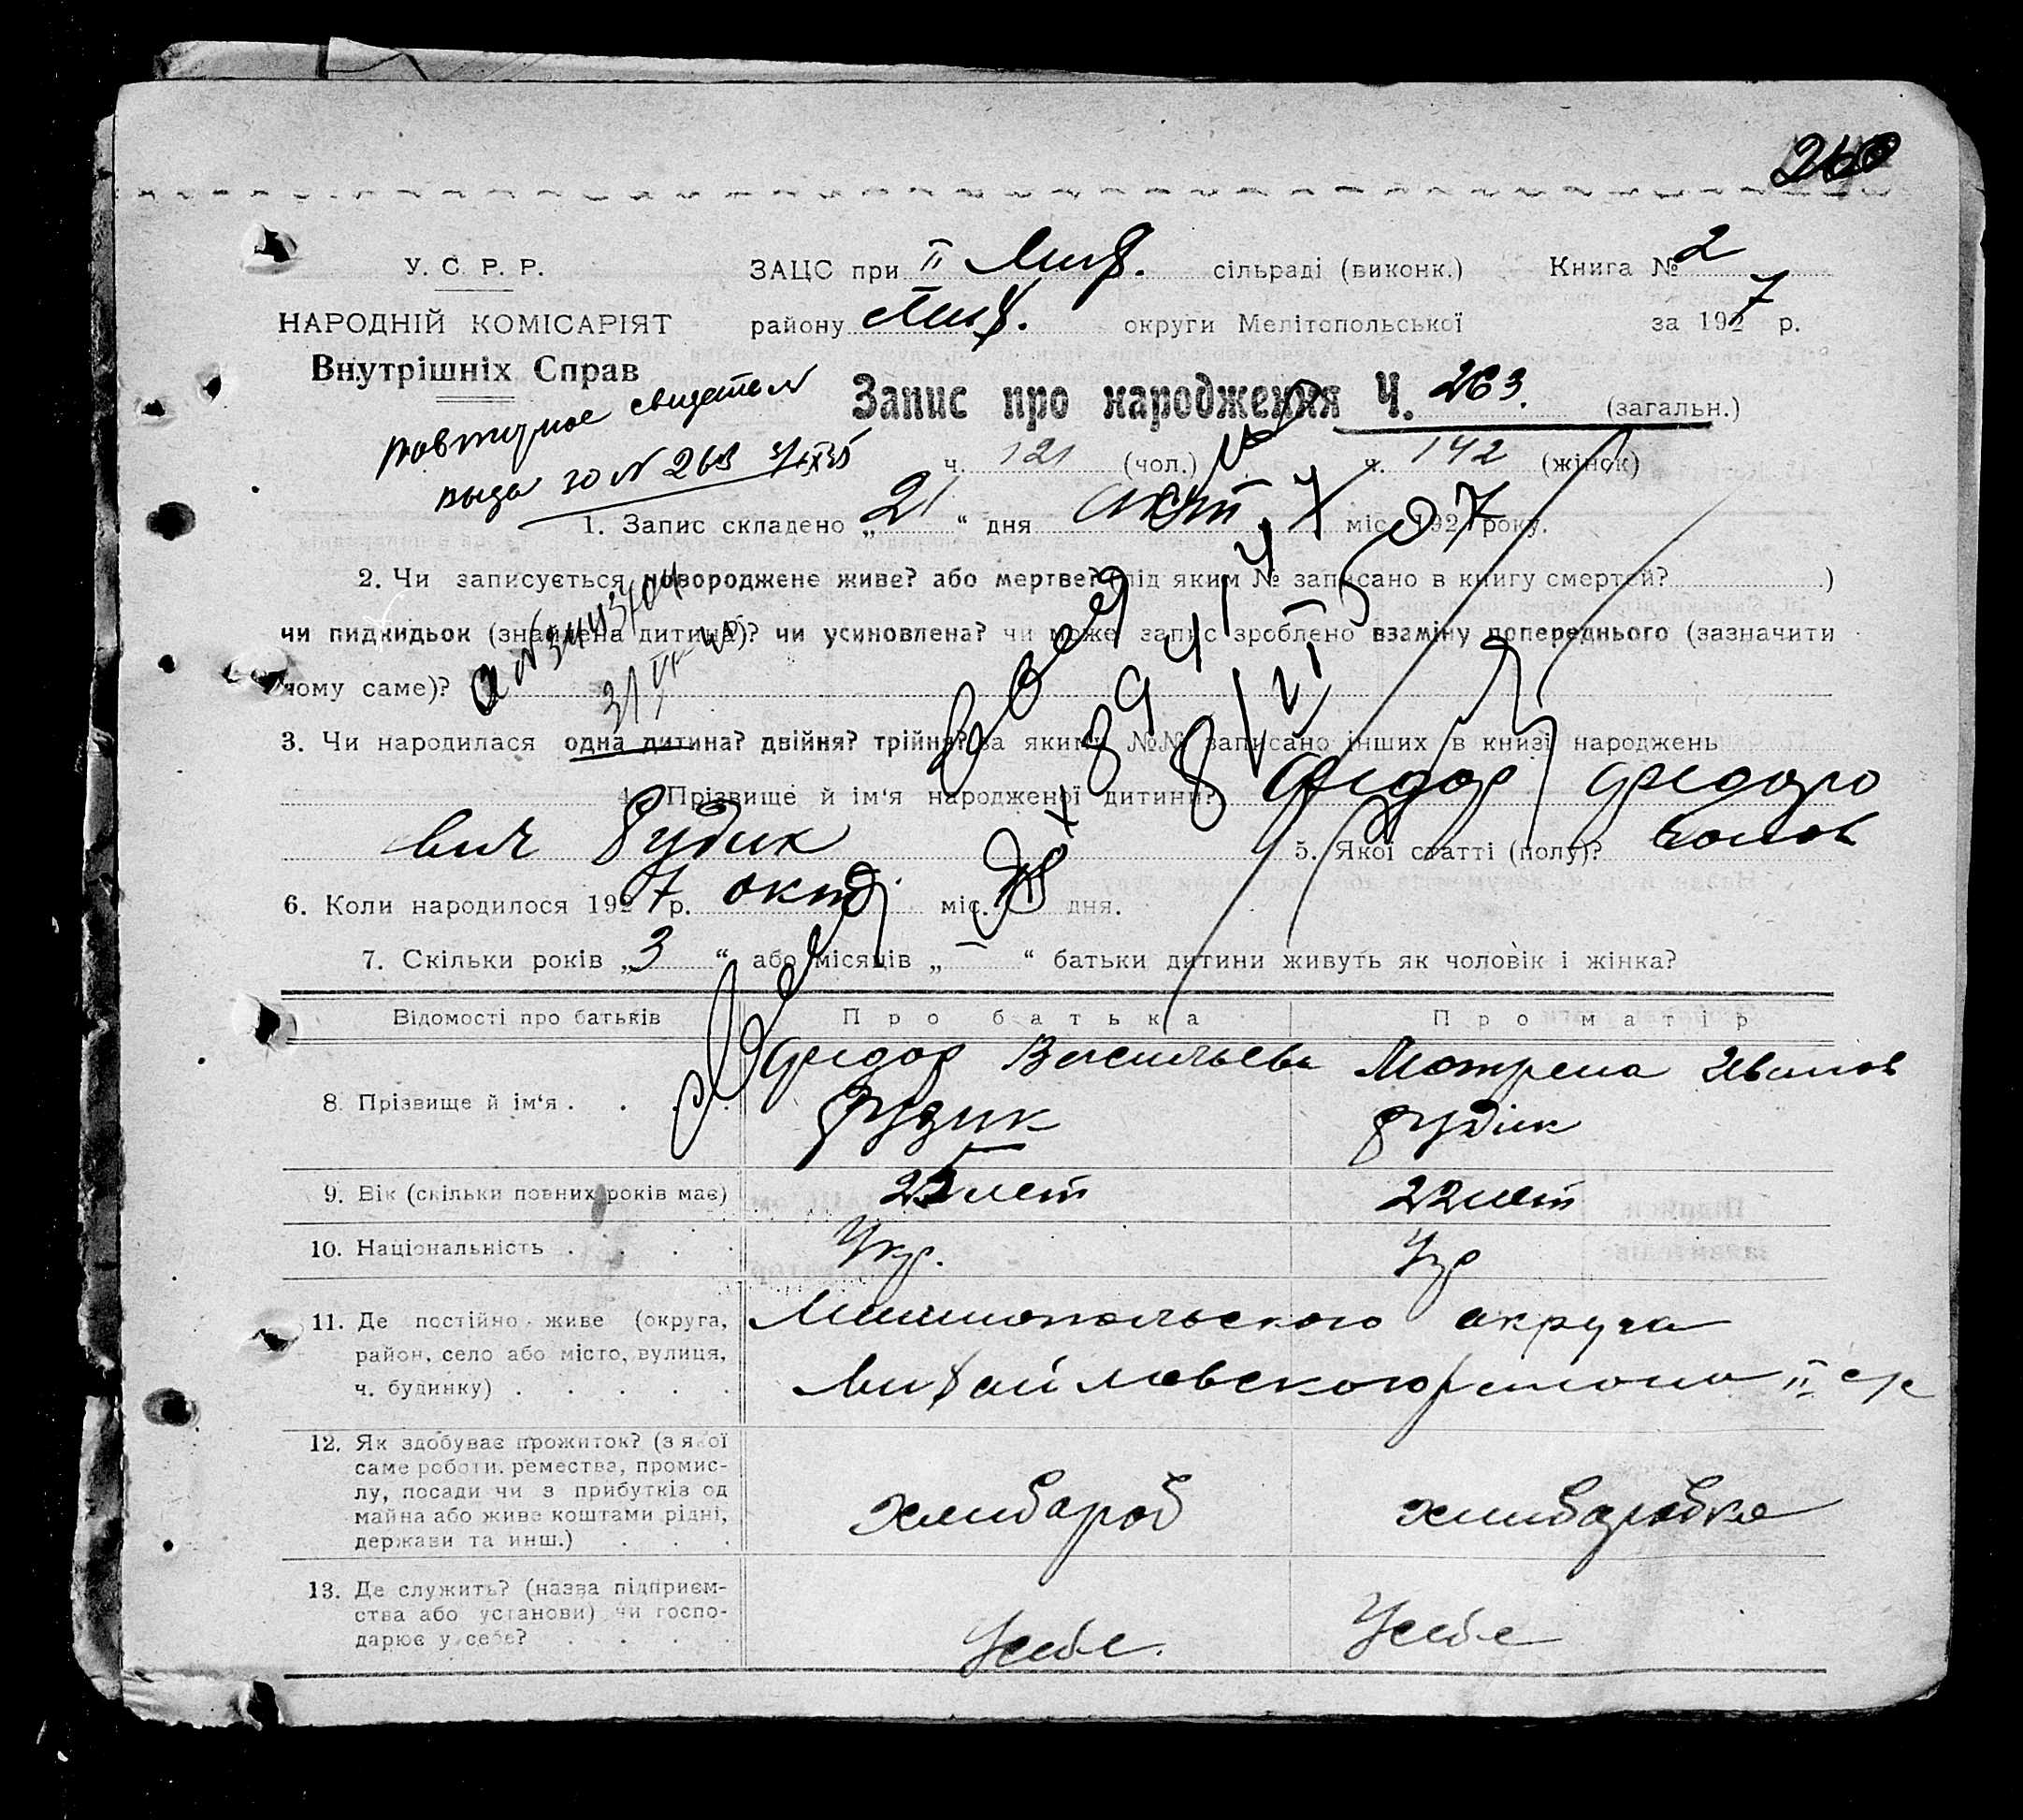 260
У. С. Р. Р. ЗАЦС при II Мих. сільраді (виконк.) Книга № 2
НАРОДНІЙ КОМІСАРІЯТ району Мих. округи Мелітопольської за 1927 р.
Внутрішніх Справ
Запис про народження Ч. 263. (загальн.)
повторное свидетел
выда за N 263
ч. 121 (чол.) ч. 142 (жінок)
1. Запис складено „21“ дня окт. міс. 1927 року.
2. Чи записується новороджене живе? або мертве? (під яким № записано в книгу смертей? )
чи пидкидьок (знайдена дитина)? чи усиновлена? чи може запис зроблено взаміну попереднього (зазначити
чому саме)?
3. Чи народилася одна дитина? двійня? трійня? за якими №№ записано інших в книзі народжень
4. Прізвище й ім'я народженої дитини? Федор Федоро
вич Рудик 5. Якої статті (полу)?
6. Коли народилося 1927 р. окт міс. дня.
7. Скільки років „3“ або місяців „–“ батьки дитини живуть як чоловік і жінка?
Відомості про батьків Про батька Про матір
8. Прізвище й ім'я . . . . Федор Васильев Мотрена Иванов
Рудик Рудік
9. Вік (скільки повних років має) 25 лет 22 лет
10. Національність . . . . Укр. Укр
11. Де постійно живе (округа, Мелитопольского округа
район, село або місто, вулиця,
ч. будинку) . . . . . Михайловского района II с/с
12. Як здобуває прожиток? (з якої
саме роботи, ремества, промис-
лу, посади чи з прибутків од
майна або живе коштами рідні, хлибароб хлибаробка
держави та инш.) . . .
13. Де служить? (назва підприєм-
ства або установи) чи госпо-
дарює у себе? . . . . У себе. У себе